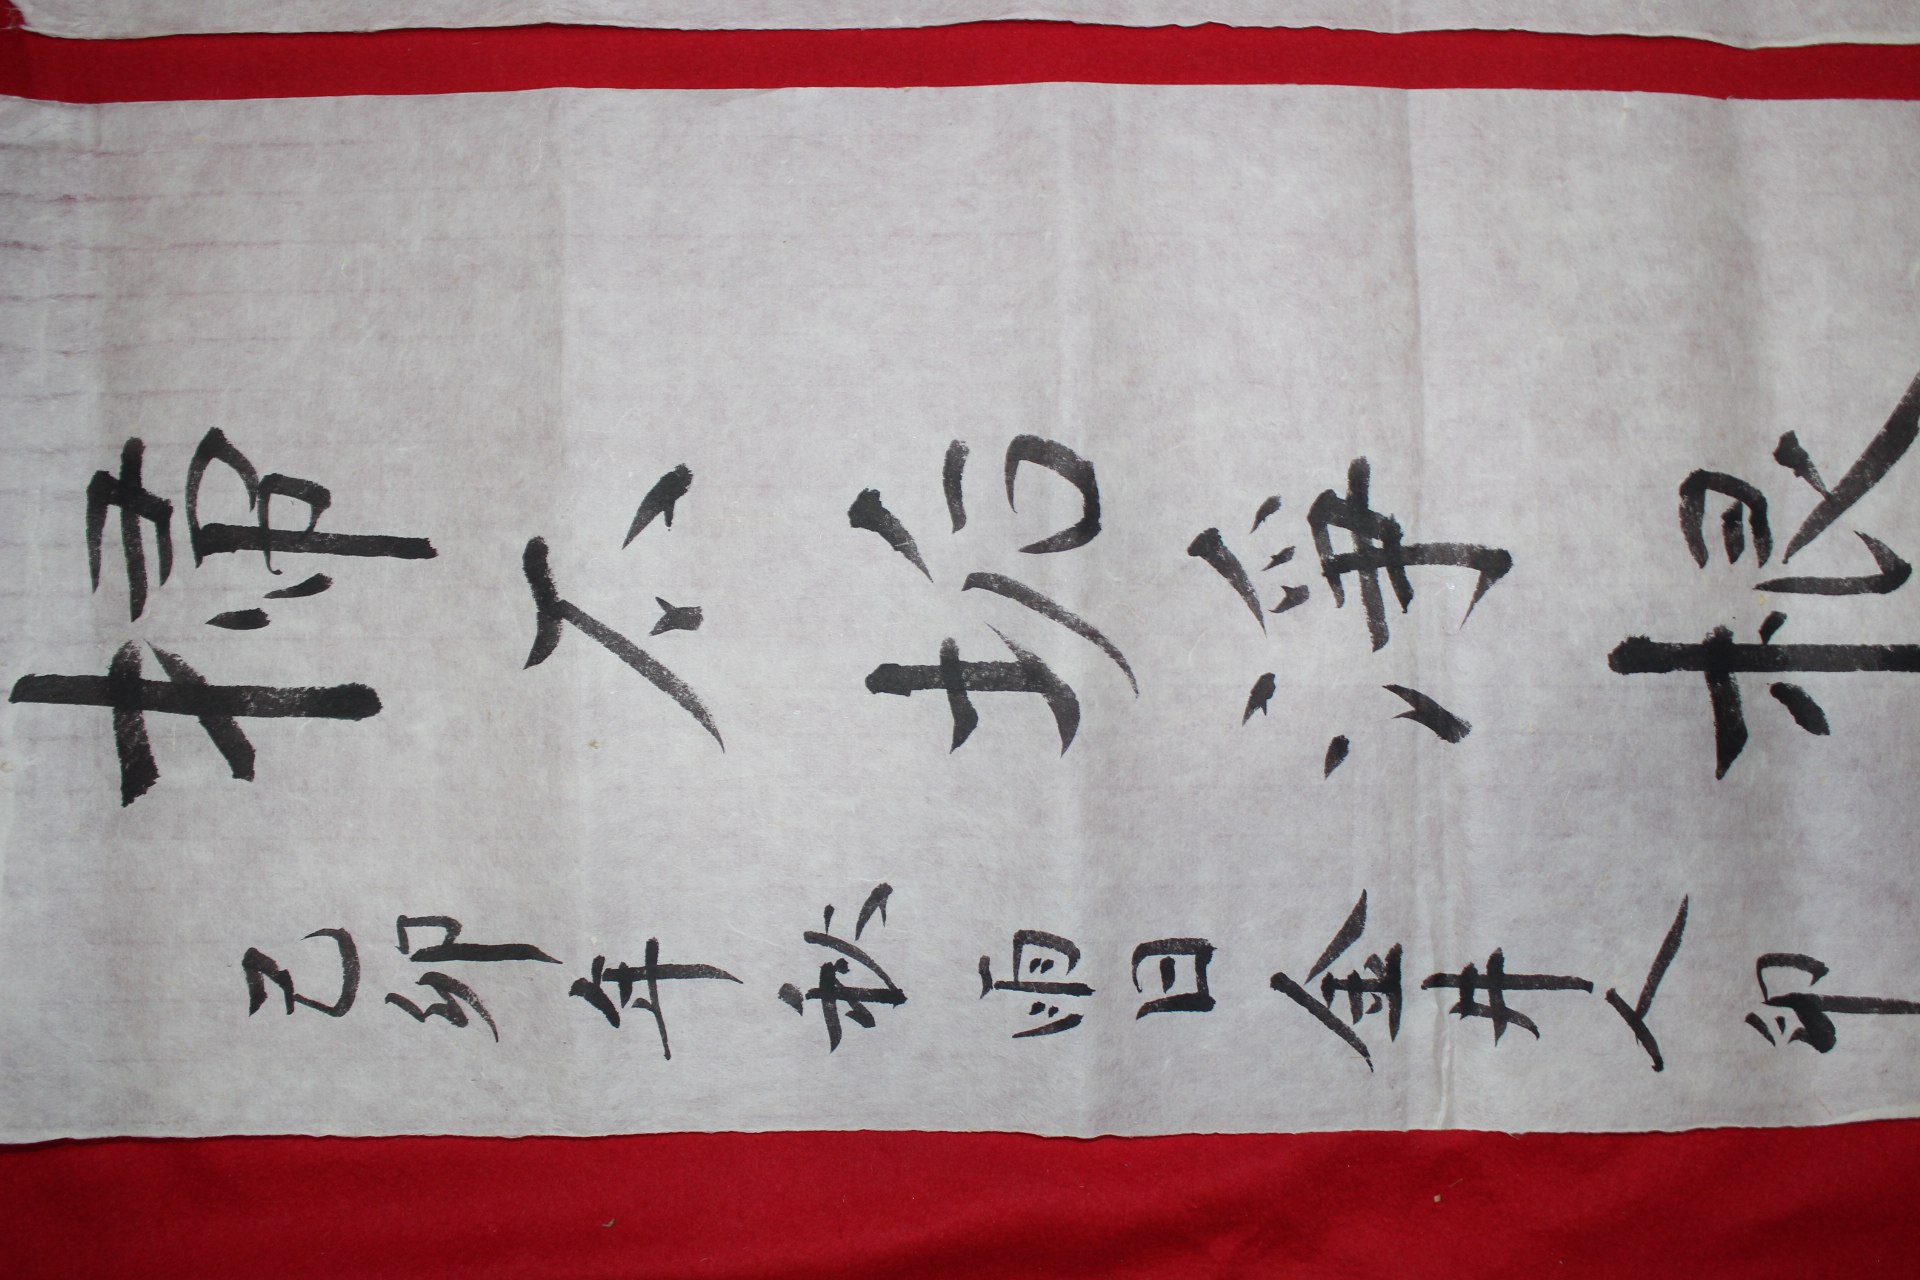 掃不垢淨根
己卯年秋雨日金井人印